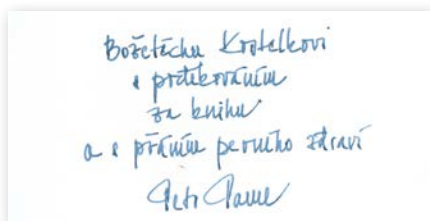 Božetěchu Kostelkovi
s poděkováním
za knihu
a s přáním pevného zdraví
Petr Pavel